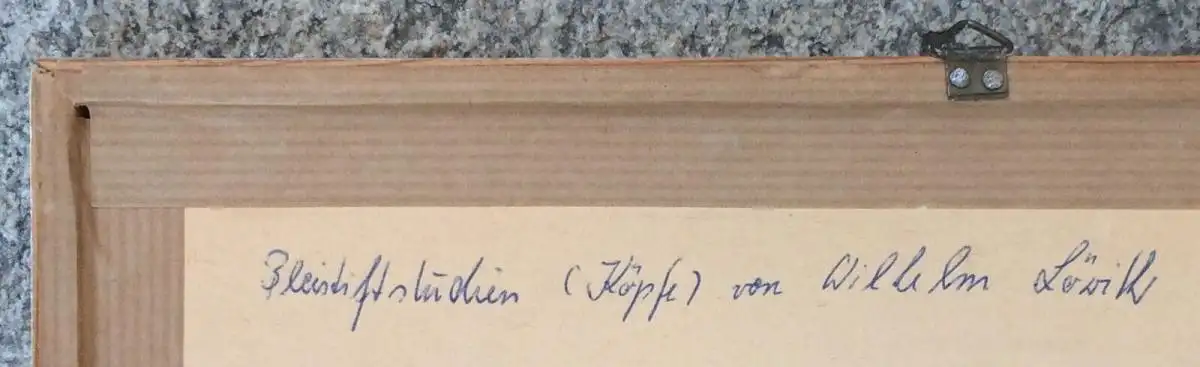 Bleistiftstudien (Köpfe) von Wilhelm Löwith